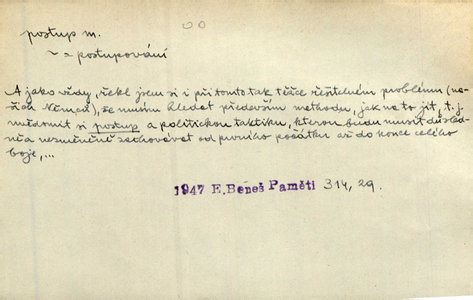 postup m.
~ = postupování
A jako vždy, řekl jsem si i při tomto tak těžce řešitelném problému (na-
šich Němců), že musím hledat především methodu, jak na to jít, t. j.
ujasnit si postup a politickou taktiku, kterou budu muset důsled-
ně a nezměněně zachovávat od prvního počátku až do konce celého
boje, ...
1947 E. Beneš Paměti 314, 29.